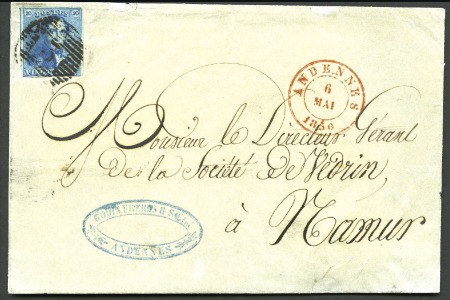 ANDENNES
6
MAI
1850
Monsieur le Directeur Gérant
De la Société De Védrin,
à Namur
GODIN FRERES &
ANDENNES